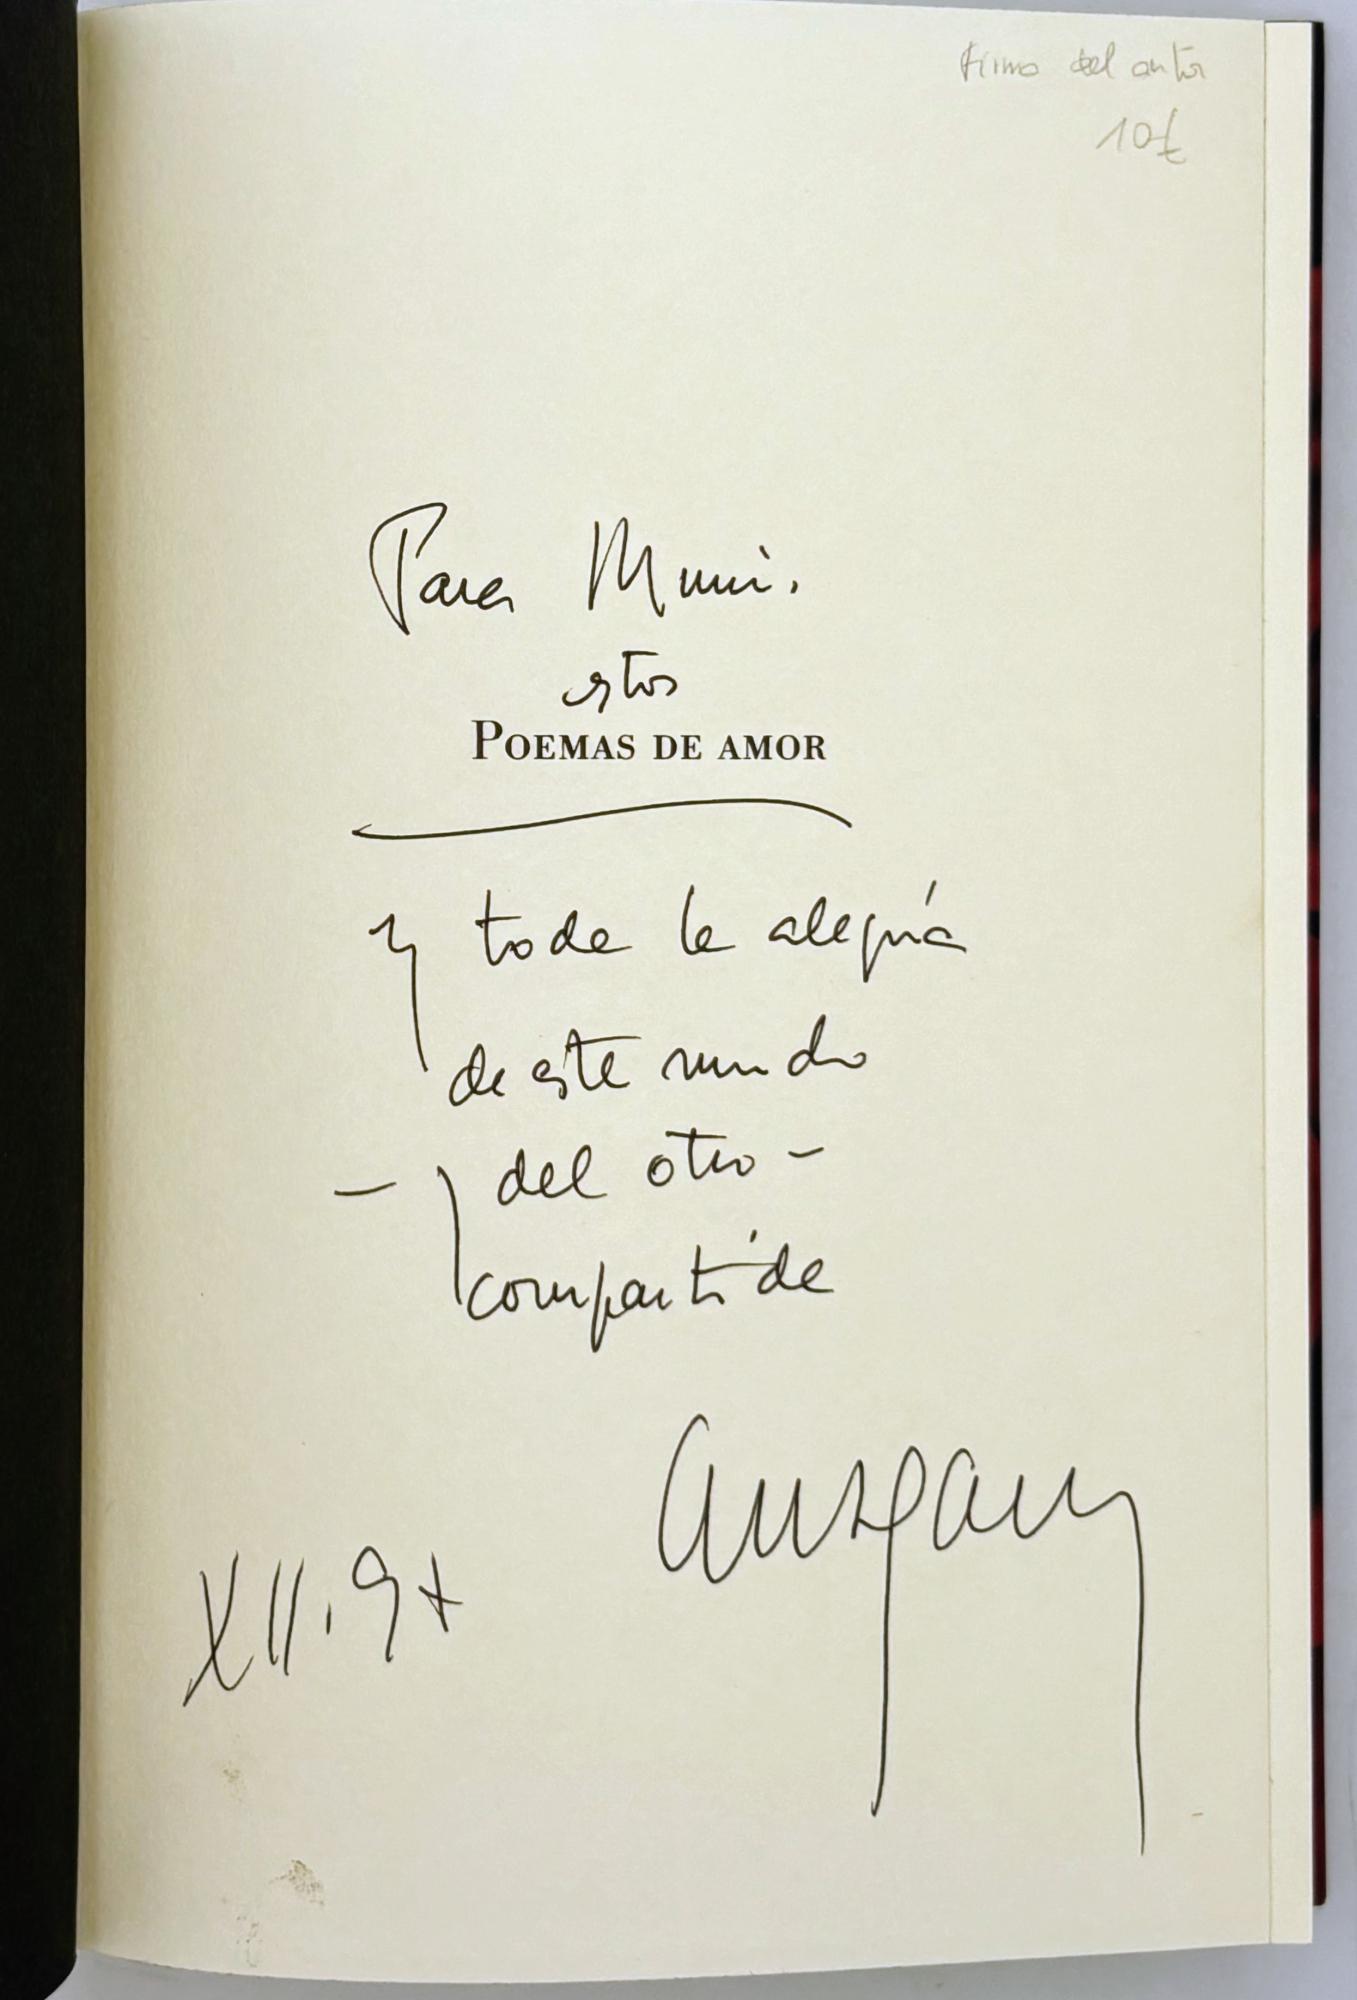 firma del autor
10€
Para Mimi.
estos
POEMAS DE AMOR
y toda la alegría
de este mundo
- y del otro -
compartida
XII.97